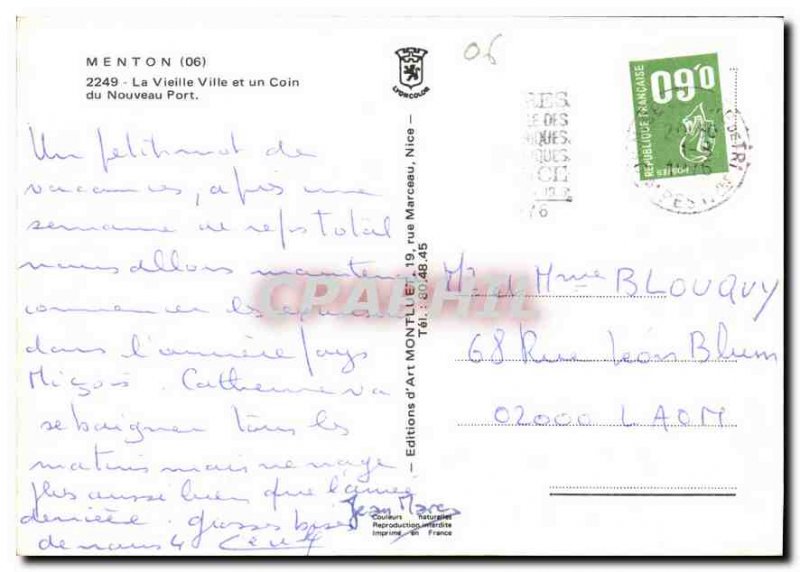 MENTON (06)
2249 - La Vieille Ville et un Coin
du Nouveau Port.
LYONCOLOR
06
0,60
REPUBLIQUE FRANÇAISE
POSTES
Un petit mot de
vacances, après une
semaine de repos total
nous allons
commencer les
dans l'arrière pays
Niçois. Catherine va
se baigner tous les
matins mais ne nage
plus aussi bien que l'année
dernière. grosses bises
de nous 4
Jean Marc
Editions d'Art MONTLUET, 19, rue Marceau, Nice
Tél. : 80.48.45
Couleurs naturelles
Reproduction interdite
Imprimé en France
CPAPHIL
Mr et Mme BLOUQUY
68 Rue Léon Blum
02000 LAON